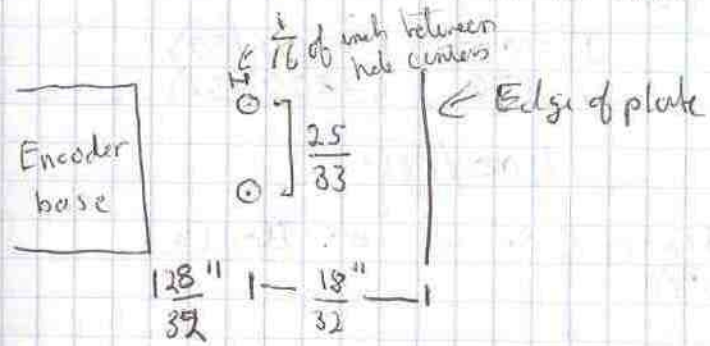 ← 1/16 of inch between
hole centers
← Edge of plate
Encoder
base
25/33
128"/32
18"/32